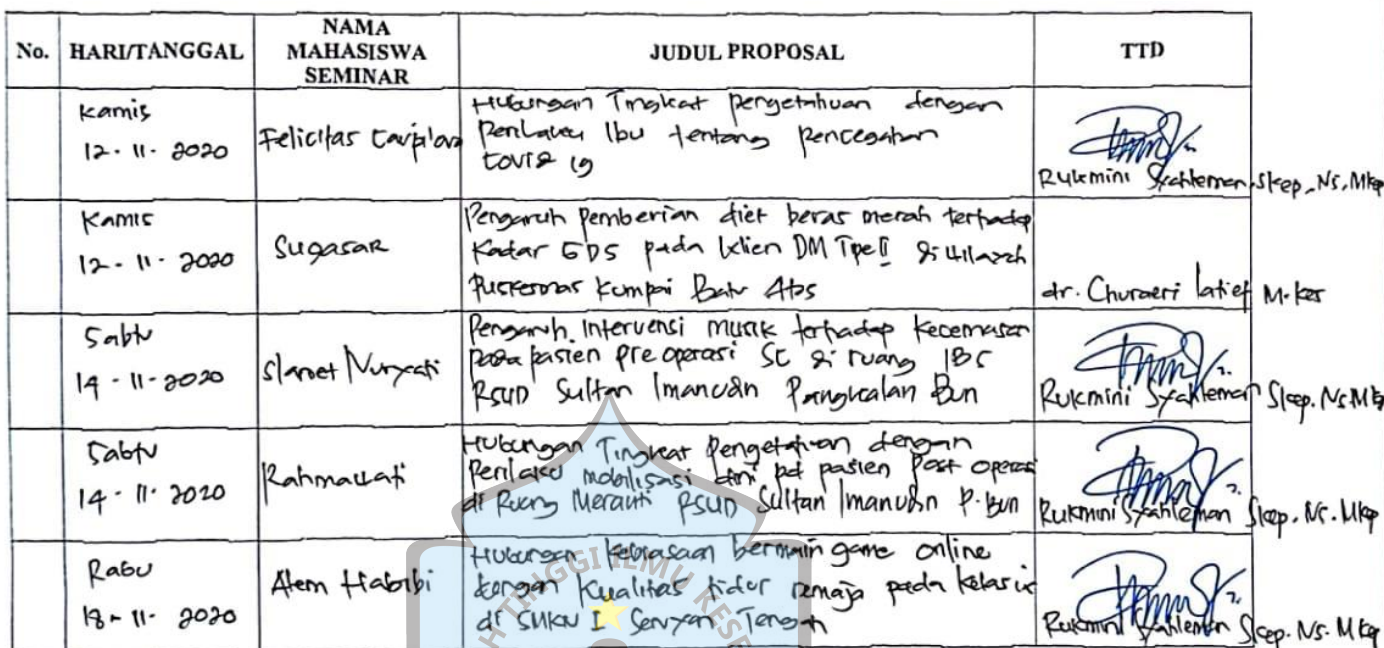 No. HARI/TANGGAL NAMA MAHASISWA SEMINAR JUDUL PROPOSAL TTD
Kamis
12-11-2020
Felicitas
Hubungan Tingkat pengetahuan dengan
Perilaku Ibu tentang pencegahan
Covid 19
Rukmini Syahleman Skep, Ns, Mkep
Kamis
12-11-2020
Sugasar
Pengaruh Pemberian diet beras merah terhadap
Kadar GDS pada klien DM Tipe II di wilayah
Puskesmas Kumpai Batu Atas
dr. Churaeri latief M.kes
Sabtu
14-11-2020
Slamet Nuryati
Pengaruh Intervensi musik terhadap kecemasan
pada pasien pre operasi SC di ruang IBS
RSUD Sultan Imanudin Pangkalan Bun
Rukmini Syahleman Skep. Ns Mkep
Sabtu
14-11-2020
Rahmawati
Hubungan Tingkat Pengetahuan dengan
Perilaku mobilisasi dini pd pasien Post operasi
di Ruang Meranti RSUD Sultan Imanudin P. Bun
Rukmini Syahleman Skep. Ns. Mkep
Rabu
18-11-2020
Alem Habibi
Hubungan kebiasaan bermain game online
dengan Kualitas tidur remaja pada kelas ix
di Seruyan Tengah
Rukmini Syahleman Skep. Ns. Mkep
TINGGI ILMU